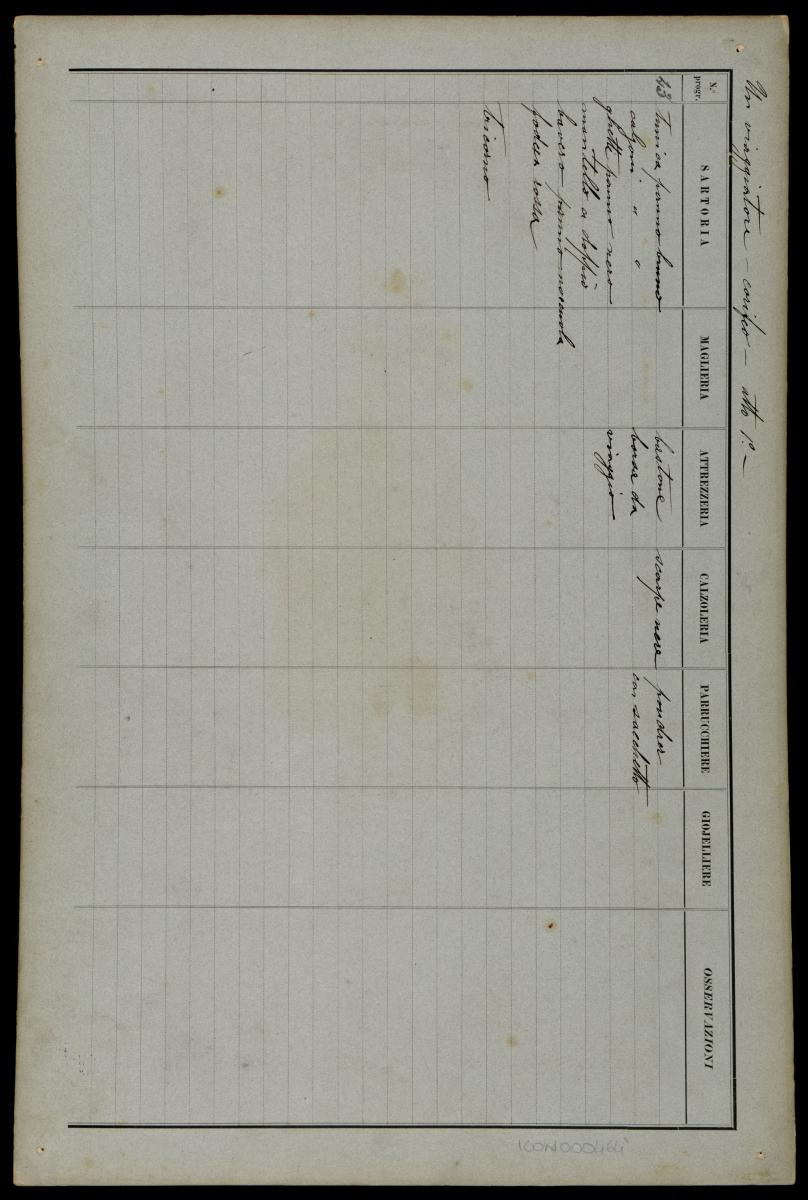 Un viaggiatore – corifeo – atto 1º –
N.º progr.
SARTORIA
MAGLIERIA
ATTREZZERIA
CALZOLERIA
PARRUCCHIERE
GIOJELLIERE
OSSERVAZIONI
43
tunica panno bruno
calzoni " "
ghette panno nero
mantello a doppio
bavero panno nocciola
fodera rossa
tricorno
bastone
borsa da
viaggio
scarpe nere
poudrer
con sacchetto
ICON000464